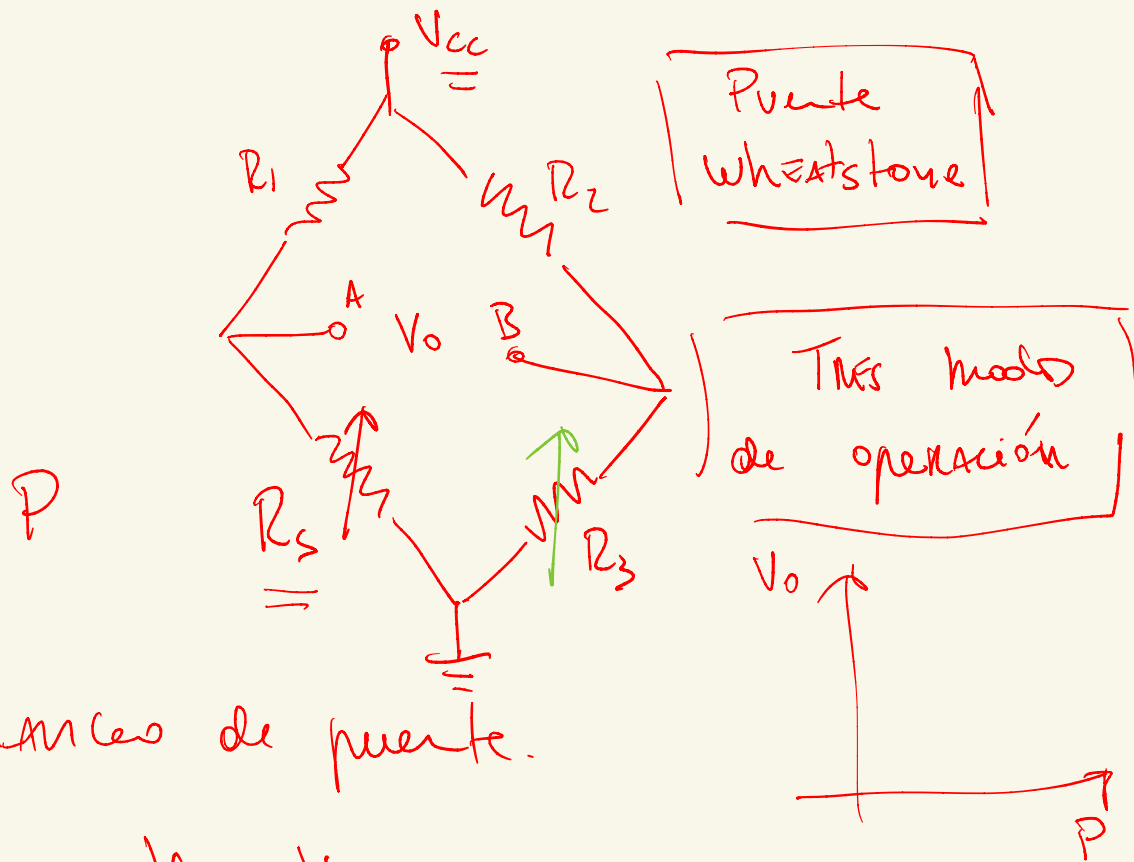 Vcc
R1
R2
Puente
WhEAtstone
A
Vo
B
TRES modos
de operación
P
Rs
R3
Vo
de puente.
P